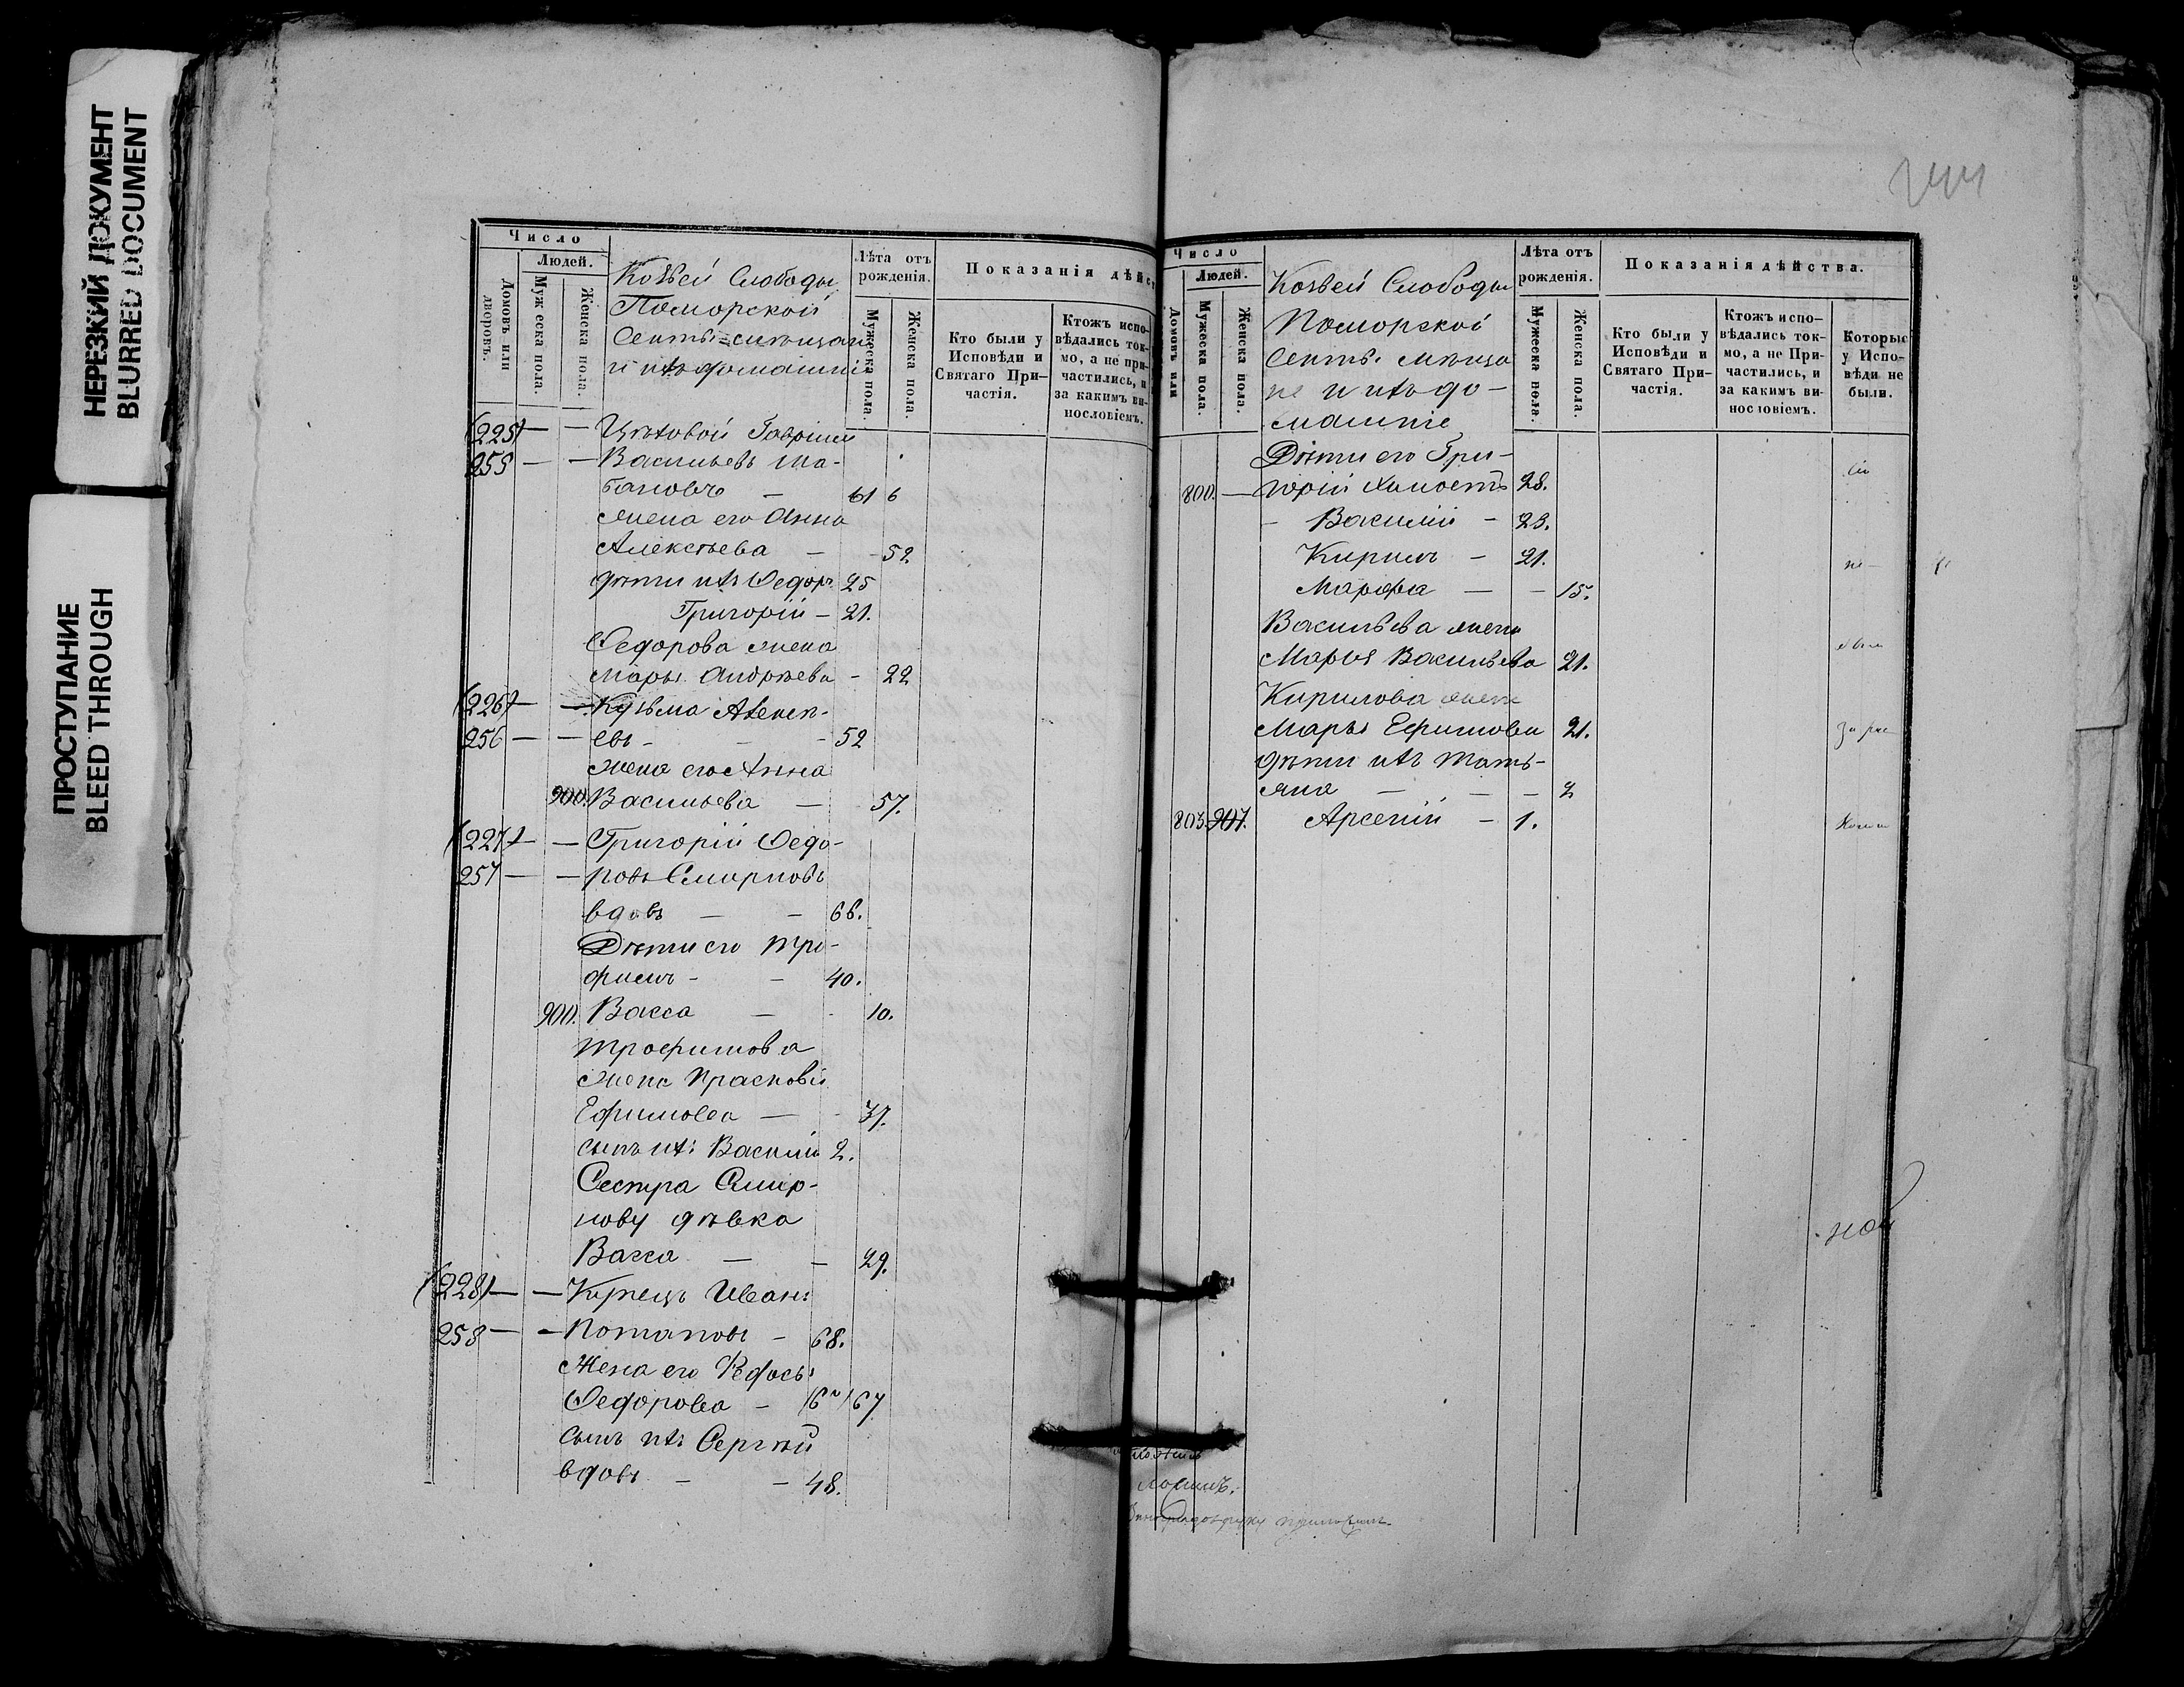 НЕРЕЗКИЙ ДОКУМЕНТ
BLURRED DOCUMENT
ПРОСТУПАНИЕ
BLEED THROUGH
Число
Людей.
Домовъ или дворовъ.
Мужеска пола.
Женска пола.
Козьей Слободы
Поморской
Секты мѣщане
и ихъ домашніе
Лѣта отъ рожденія.
Мужеска пола.
Женска пола.
Показанія дѣйст
Кто были у Исповѣди и Святаго При-частія.
Ктожъ испо-вѣдались ток-мо, а не при-частились, и за какимъ ви-нословіемъ.
(225) — — Цѣховой Гавріилъ
255 — — Васильевъ Ша-
бановъ — 61 6
жена его Анна
Алексѣева — - 52
дѣти ихъ Ѳедоръ 25
Григорій — 21.
Ѳедорова жена
Марья Андреева - 22
(226) — — Кузьма Алексѣ-
256 — — евъ - - 52
жена его Анна
900. Васильева — 57.
(227) — — Григорій Ѳедо-
257 — — ровъ Смирновъ
вдовъ — - 66.
Дѣти его Тро-
фимъ - - 40.
900. Васса — - 10.
Трофимова
жена Прасковья
Ефимова — - 37.
сынъ ихъ Василій 2.
Сестра Смир-
нову дѣвка
Васса — - 29.
(228) — — Купецъ Иванъ
258 — — Потаповъ - 68.
Жена его Ѳедосья
Ѳедорова - 67
сынъ ихъ Сергѣй
вдовъ — - 48.
Число
Людей.
Домовъ или
Мужеска пола.
Женска пола.
Козьей Слободы
Поморской
Секты мѣща
не и ихъ до-
машніе
Лѣта отъ рожденія.
Мужеска пола.
Женска пола.
Показанія дѣйства.
Кто были у Исповѣди и Святаго При-частія.
Ктожъ испо-вѣдались ток-мо, а не При-частились, и за какимъ ви-нословіемъ.
Которые у Испо-вѣди не были.
Дѣти его Гри-
800. — горій холостъ 28.
- Василій - 23.
Кирилъ - 21.
Марфа — - 15.
Васильева жена
Марья Васильева 21.
Кирилова жена
Марья Ефимова 21.
дѣти ихъ Тать-
яна — - - 2
803. 907. Арсеній - 1.